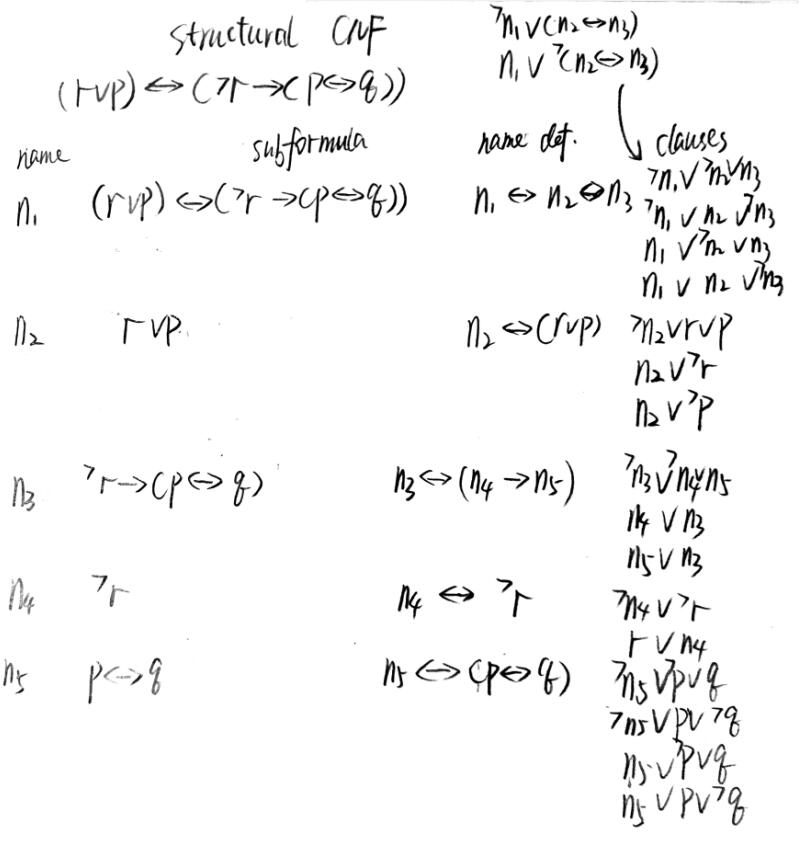 structural CNF
(r∨p) ↔ (¬r → (p ↔ q))
¬n₁ ∨ (n₂ ↔ n₃)
n₁ ∨ ¬(n₂ ↔ n₃)
name subformula name def. clauses
n₁ (r∨p) ↔ (¬r → (p ↔ q)) n₁ ↔ n₂ ↔ n₃ ¬n₁ ∨ ¬n₂ ∨ n₃
¬n₁ ∨ n₂ ∨ ¬n₃
n₁ ∨ ¬n₂ ∨ n₃
n₁ ∨ n₂ ∨ ¬n₃
n₂ r∨p n₂ ↔ (r∨p) ¬n₂ ∨ r ∨ p
n₂ ∨ ¬r
n₂ ∨ ¬p
n₃ ¬r → (p ↔ q) n₃ ↔ (n₄ → n₅) ¬n₃ ∨ ¬n₄ ∨ n₅
n₄ ∨ n₃
n₅ ∨ n₃
n₄ ¬r n₄ ↔ ¬r ¬n₄ ∨ ¬r
r ∨ n₄
n₅ p ↔ q n₅ ↔ (p ↔ q) ¬n₅ ∨ ¬p ∨ q
¬n₅ ∨ p ∨ ¬q
n₅ ∨ ¬p ∨ q
n₅ ∨ p ∨ ¬q